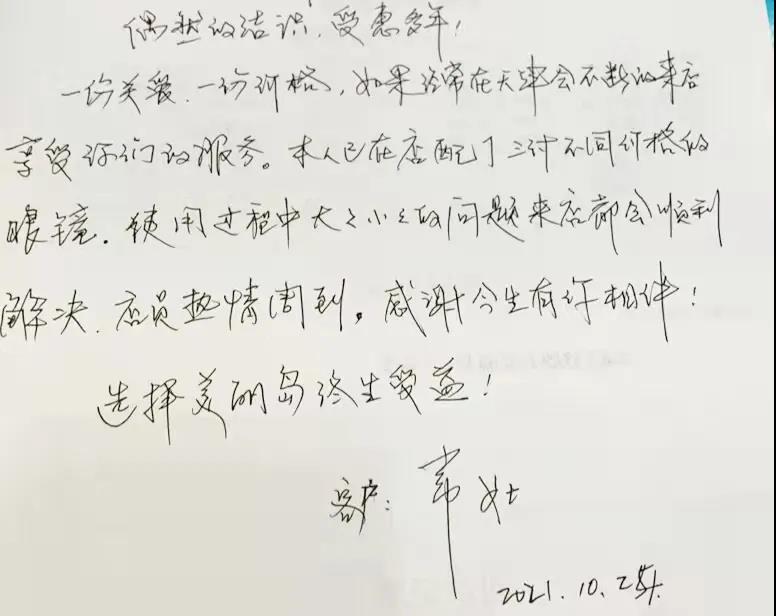 偶然的结识、受惠多年!
一份关爱、一份价格,如果经常在天津会不断的来店
享受你们的服务。本人已在店配了三付不同价格的
眼镜.使用过程中大大小小的问题来店都会顺利
解决、店员热情周到。感谢今生有你相伴!
选择美丽岛终生受益!
客户:常
2021.10.